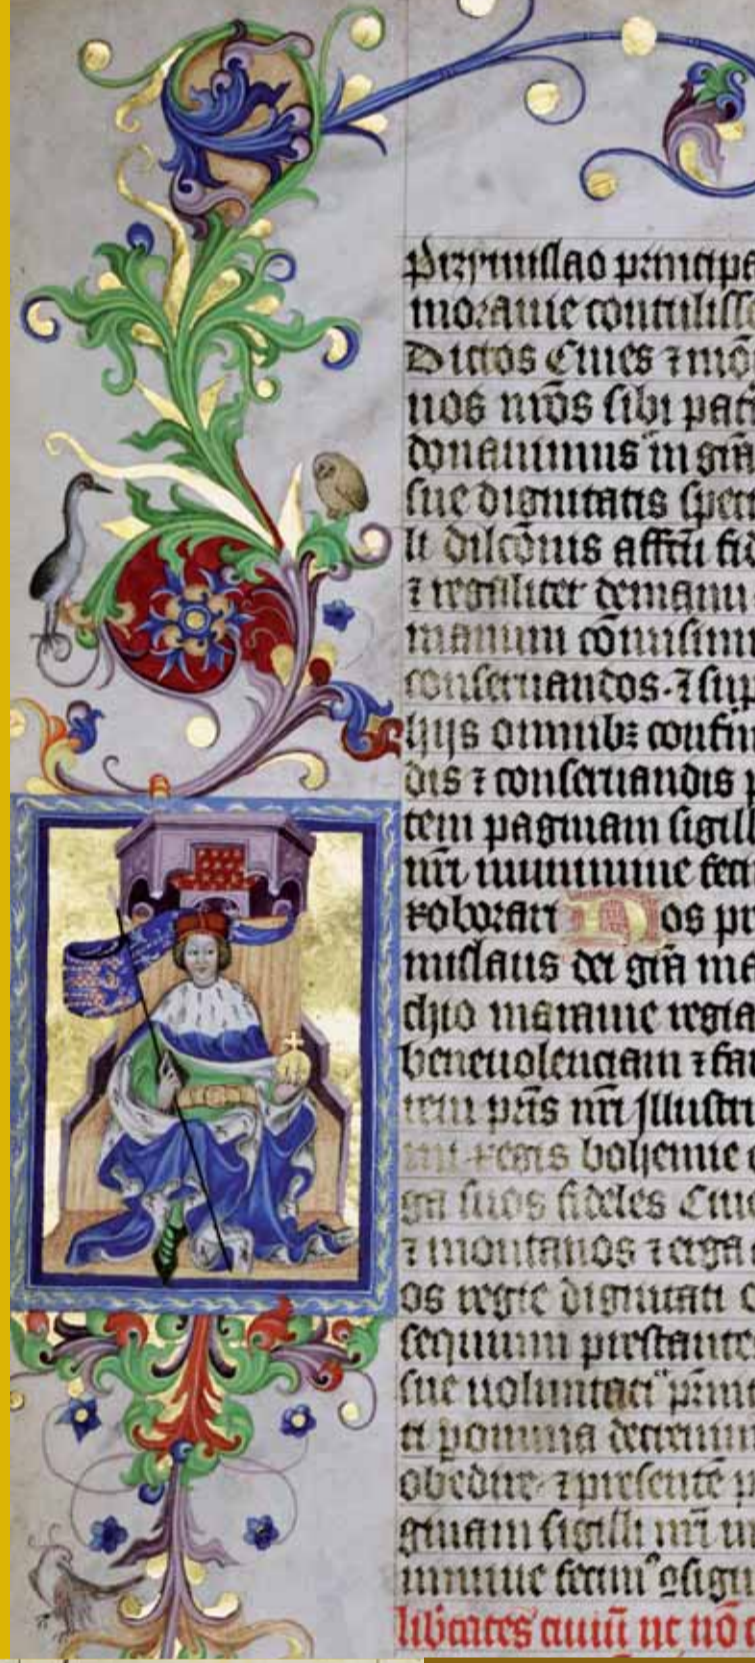 Přzymislao principa
morauie contuliss
Dictos Ciues ⁊ mō
nos nr̄os sibi pat
donauimus in grā
sue dignitatis spec
li dilcōnis affcū fid
⁊ regaliter demanu
manum cōmisimu
conseruandos · ⁊ sup
hijs omnibꝫ confir
dis ⁊ conseruandis p
tem paginam sigill
nr̄i munimine feci
roborari Nos pr
mislaus dei grā ma
chio morauie regia
beneuolenciam ⁊ fau
rem pr̄is nr̄i Jllustri
mi regis bohemie e
ga suos fideles Ciue
⁊ montanos ⁊ erga
os regie dignitati
sequium prestante
sue uoluntati
ti
obedire ⁊ presentē p
ginam sigilli nr̄i m
nimine fecim⁹ ↄsign
libertates ciuiū ut nō